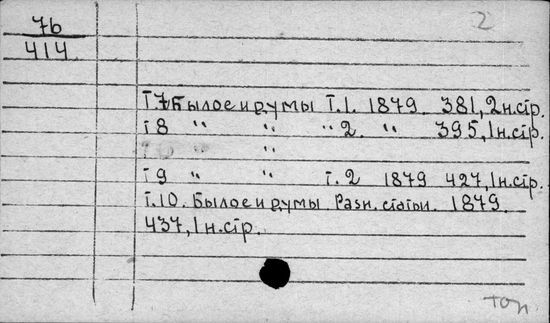 76
2
414
Т.7 Былое и думы Т.1. 1879. 381, 2 н.стр.
Т 8 " " " 2. " 395, 1 н.стр.
Т 9 " " Т. 2 1879 427, 1 н.стр.
Т.10. Былое и думы. Разн. статьи. 1879.
437, 1 н.стр.
топ